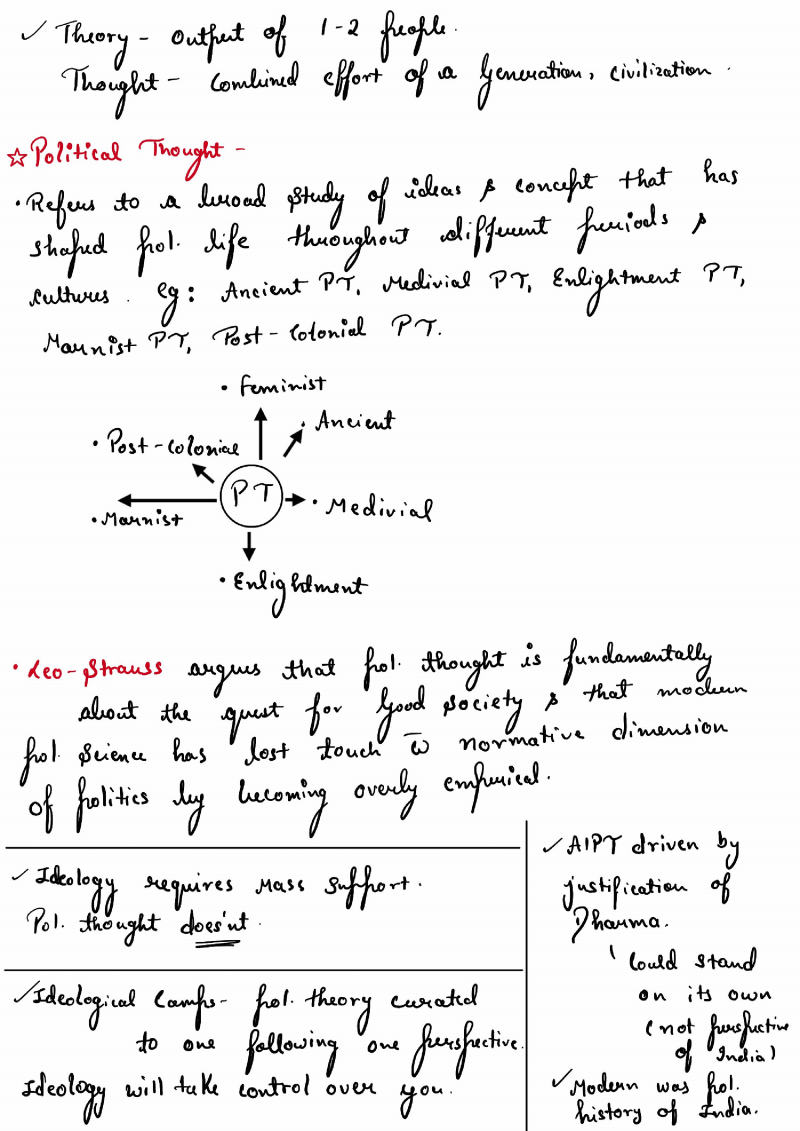 ✓ Theory - Output of 1-2 people.
Thought - Combined effort of a Generation, civilization.
☆ Political Thought -
• Refers to a broad study of ideas & concept that has
shaped pol. life throughout different periods &
cultures. eg: Ancient PT, Medivial PT, Enlightment PT,
Marxist PT, Post-Colonial PT.
• Feminist
• Ancient
• Post-Colonial
PT
• Medivial
• Marxist
• Enlightment
• Leo-Strauss argues that pol. thought is fundamentally
about the quest for Good Society & that modern
pol. science has lost touch w̅ normative dimension
of politics by becoming overly emperical.
✓ Ideology requires Mass Support.
Pol. thought does'nt.
✓ Ideological Camps - pol. theory curated
to one following one perspective.
Ideology will take control over you.
✓ AIPT driven by
justification of
Dharma.
Could stand
on its own
(not perspective
of India)
✓ Modern was pol.
history of India.